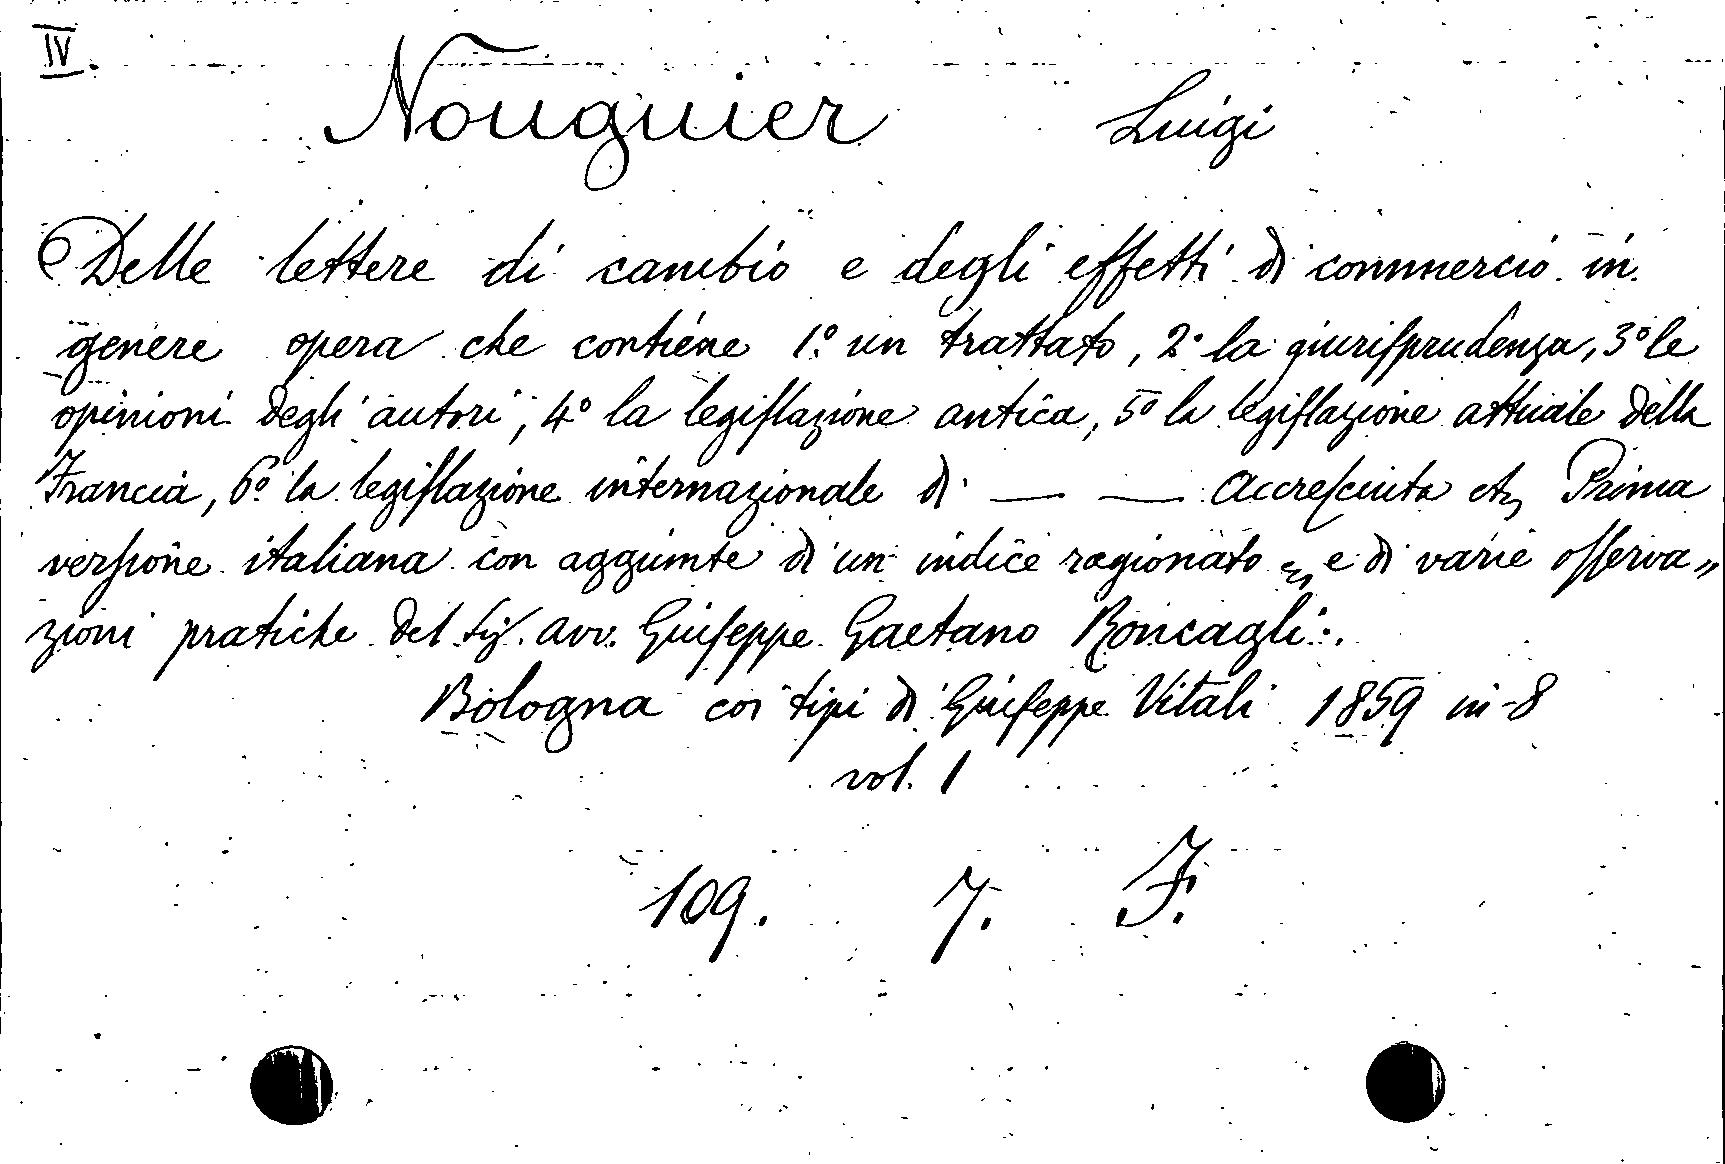 IV.
Nouguier Luigi
Delle lettere di cambio e degli effetti di commercio in
genere opera che contiene 1.º un trattato, 2º la giurisprudenza, 3º le
opinioni degli autori, 4º la legislazione antica, 5º la legislazione attuale della
Francia, 6º la legislazione internazionale di — — accresciuta etc Prima
versione italiana con aggiunte di un indice ragionato e di varie osserva„
zioni pratiche del sig. avv. Giuseppe Gaetano Roncagli.
Bologna coi tipi di Giuseppe Vitali 1859 in-8
vol. 1
109. 7. F.